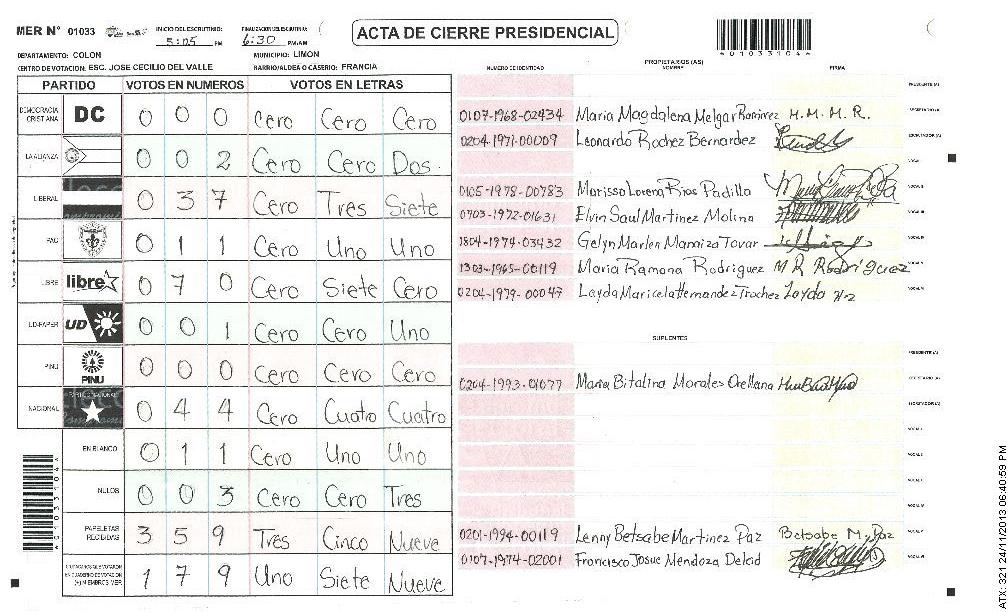 MER N° 01033 INICIO DEL ESCRUTINIO: 5:05 PM FINALIZACION DEL ESCRUTINIO: 6:30 PM/AM
ACTA DE CIERRE PRESIDENCIAL
DEPARTAMENTO: COLON MUNICIPIO: LIMON
CENTRO DE VOTACION: ESC. JOSE CECILIO DEL VALLE BARRIO/ALDEA O CASERIO: FRANCIA
PARTIDO VOTOS EN NUMEROS VOTOS EN LETRAS
DEMOCRACIA CRISTIANA DC 0 0 0 Cero Cero Cero
LA ALIANZA 0 0 2 Cero Cero Dos.
LIBERAL 0 3 7 Cero Tres Siete
PAC 0 1 1 Cero Uno Uno
LIBRE libre 0 7 0 Cero Siete Cero
UD-FAPER UD 0 0 1 Cero Cero Uno
PINU PINU 0 0 0 Cero Cero Cero
NACIONAL 0 4 4 Cero Cuatro Cuatro
EN BLANCO 0 1 1 Cero Uno Uno
NULOS 0 0 3 Cero Cero Tres
PAPELETAS RECIBIDAS 3 5 9 Tres Cinco Nueve
1 7 9 Uno Siete Nueve
NUMERO DE IDENTIDAD PROPIETARIOS (AS) NOMBRE FIRMA
PRESIDENTE (A)
0107-1968-02434 Maria Magdalena Melgar Ramirez M. M. M. R. SECRETARIO (A)
0204-1971-00009 Leonardo Rochez Bernardez ESCRUTADOR (A)
VOCAL I
0105-1978-00783 Marissa Lorena Rios Padilla VOCAL II
0703-1972-01631 Elvin Saul Martinez Molina VOCAL III
1804-1974-03432 Gelyn Marlen Manaiza Tovar VOCAL IV
1303-1965-00119 Maria Ramona Rodriguez M R Rodríguez VOCAL V
0204-1979-00047 Layda Maricela Hernandez Trochez VOCAL VI
SUPLENTES
PRESIDENTE (A)
0204-1993-01077 Maria Bitalina Morales Orellana SECRETARIO (A)
ESCRUTADOR (A)
VOCAL I
VOCAL II
VOCAL III
VOCAL IV
0201-1994-00119 Lenny Betsabe Martinez Paz Betsabe M. Paz VOCAL V
0107-1974-02001 Francisco Josue Mendoza Delcid VOCAL VI
ATX: 321 24/11/2013 06:40:59 PM